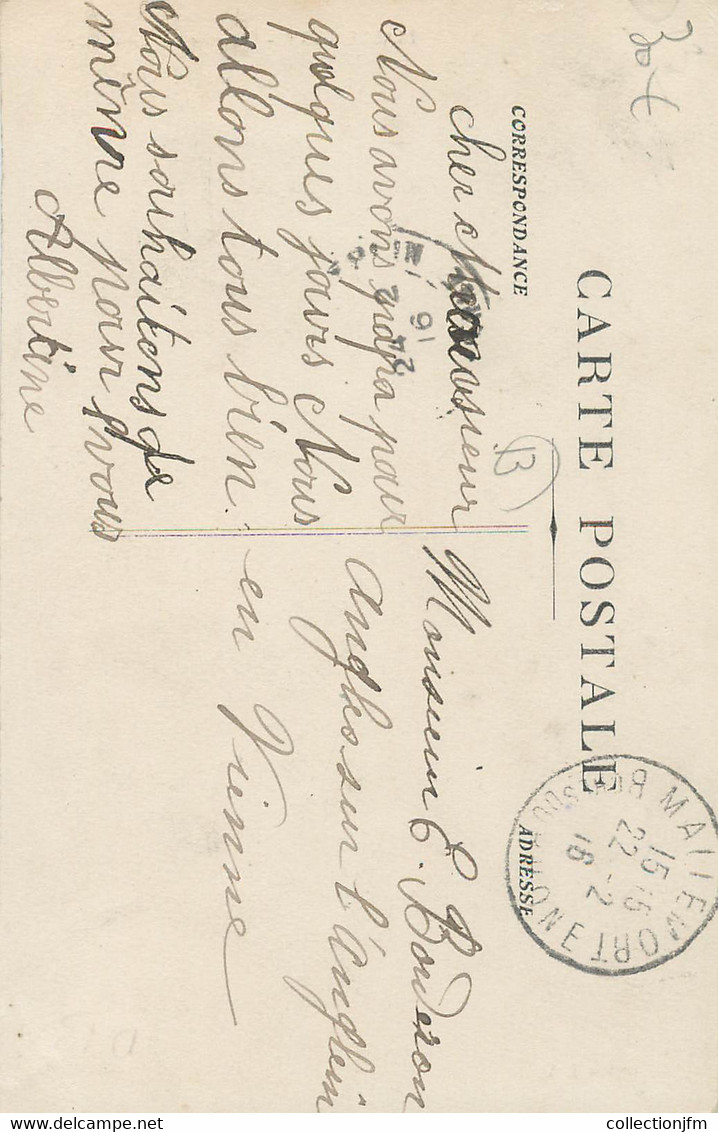 30€
CARTE POSTALE
CORRESPONDANCE
ADRESSE
B
cher Monsieur
Nous avons papa pour
quelques jours. Nous
allons tous bien.
Nous souhaitons de
même pour vous
Albertine
Monsieur E. Bouderon
Angles sur l'Anglein
en Vienne
MALLEMORT
BOUCHES DU RHONE
15 15
22 - 2
16
22
16
collectionjfm